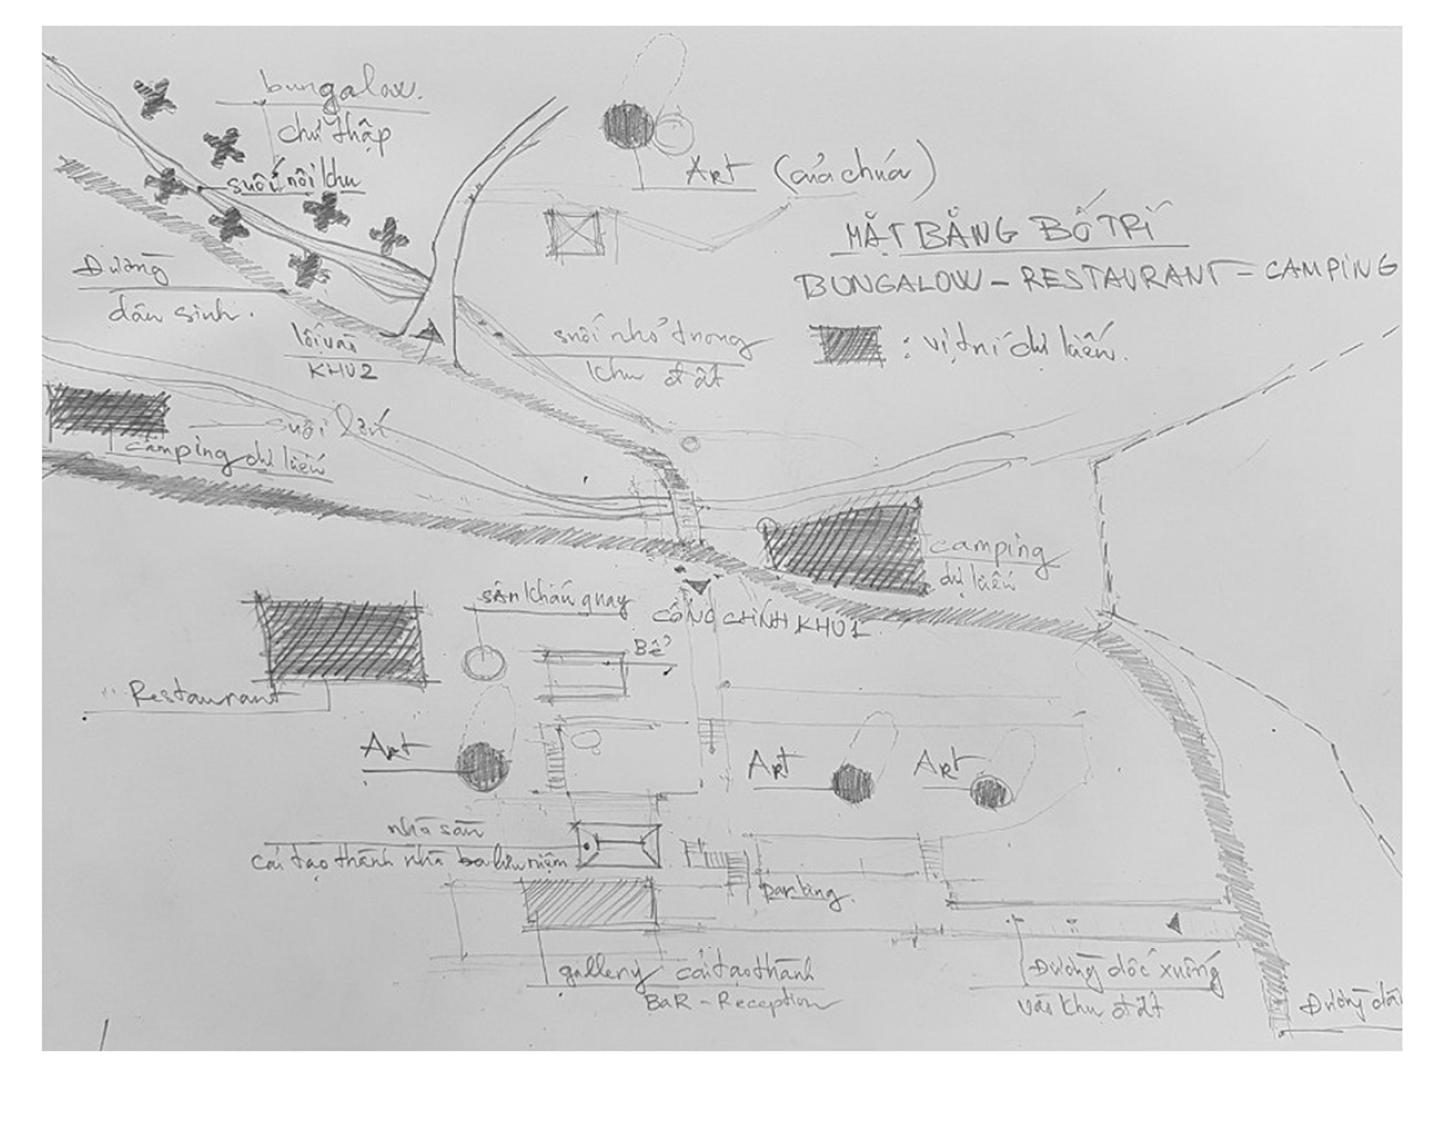 bungalow.
chữ thập
suối nội khu
Art (của chúa)
MẶT BẰNG BỐ TRÍ
BUNGALOW - RESTAURANT - CAMPING
: vị trí dự kiến.
Đường
dân sinh.
lối vào
KHU 2
suối nhỏ trong
khu đất
suối lớn
camping dự kiến
camping
dự kiến
sân khấu quay
CỔNG CHÍNH KHU 1
Bể
Restaurant
Art
Art
Art
nhà sàn
cải tạo thành nhà lưu niệm
parking.
gallery cải tạo thành
BaR - Reception
Đường dốc xuống
vào khu đất
Đường dâ